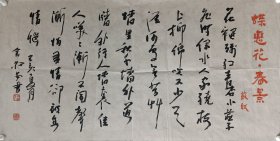 蝶恋花·春景
苏轼
花褪残红青杏小燕子
飞时绿水人家绕枝
上柳绵吹又少天
涯何处无芳草
墙里秋千墙外道
墙外行人墙里佳
人笑笑渐不闻声
渐悄多情却被无
情恼